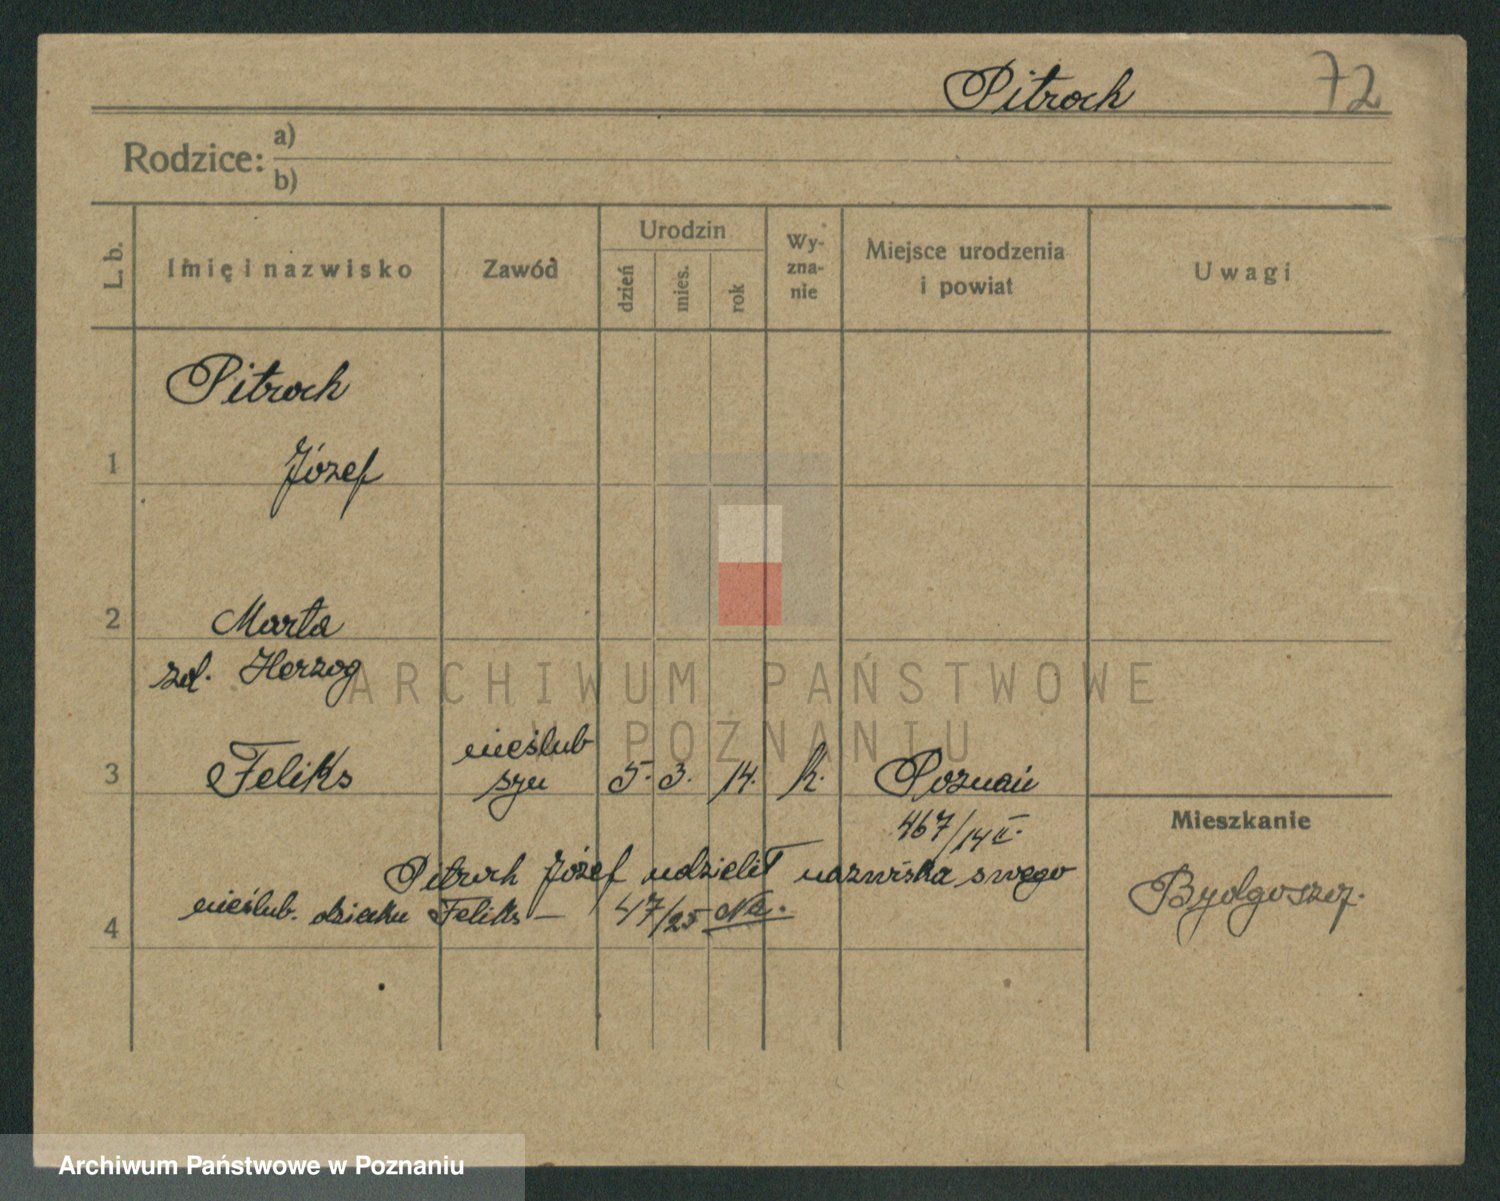 Pitroch 72
Rodzice: a)
b)
L. b. Imię i nazwisko Zawód Urodzin dzień mies. rok Wy-zna-nie Miejsce urodzenia i powiat Uwagi
Pitroch
1 Józef
2 Marta
zd. Herzog
ARCHIWUM PAŃSTWOWE
W POZNANIU
nieślub
3 Feliks syn 5. 3. 14. k. Poznań
Mieszkanie
467/14 II.
Pitroch Józef udzielił nazwiska swego
nieślub. dziecku Feliks – 47/25
Bydgoszcz.
4
Archiwum Państwowe w Poznaniu